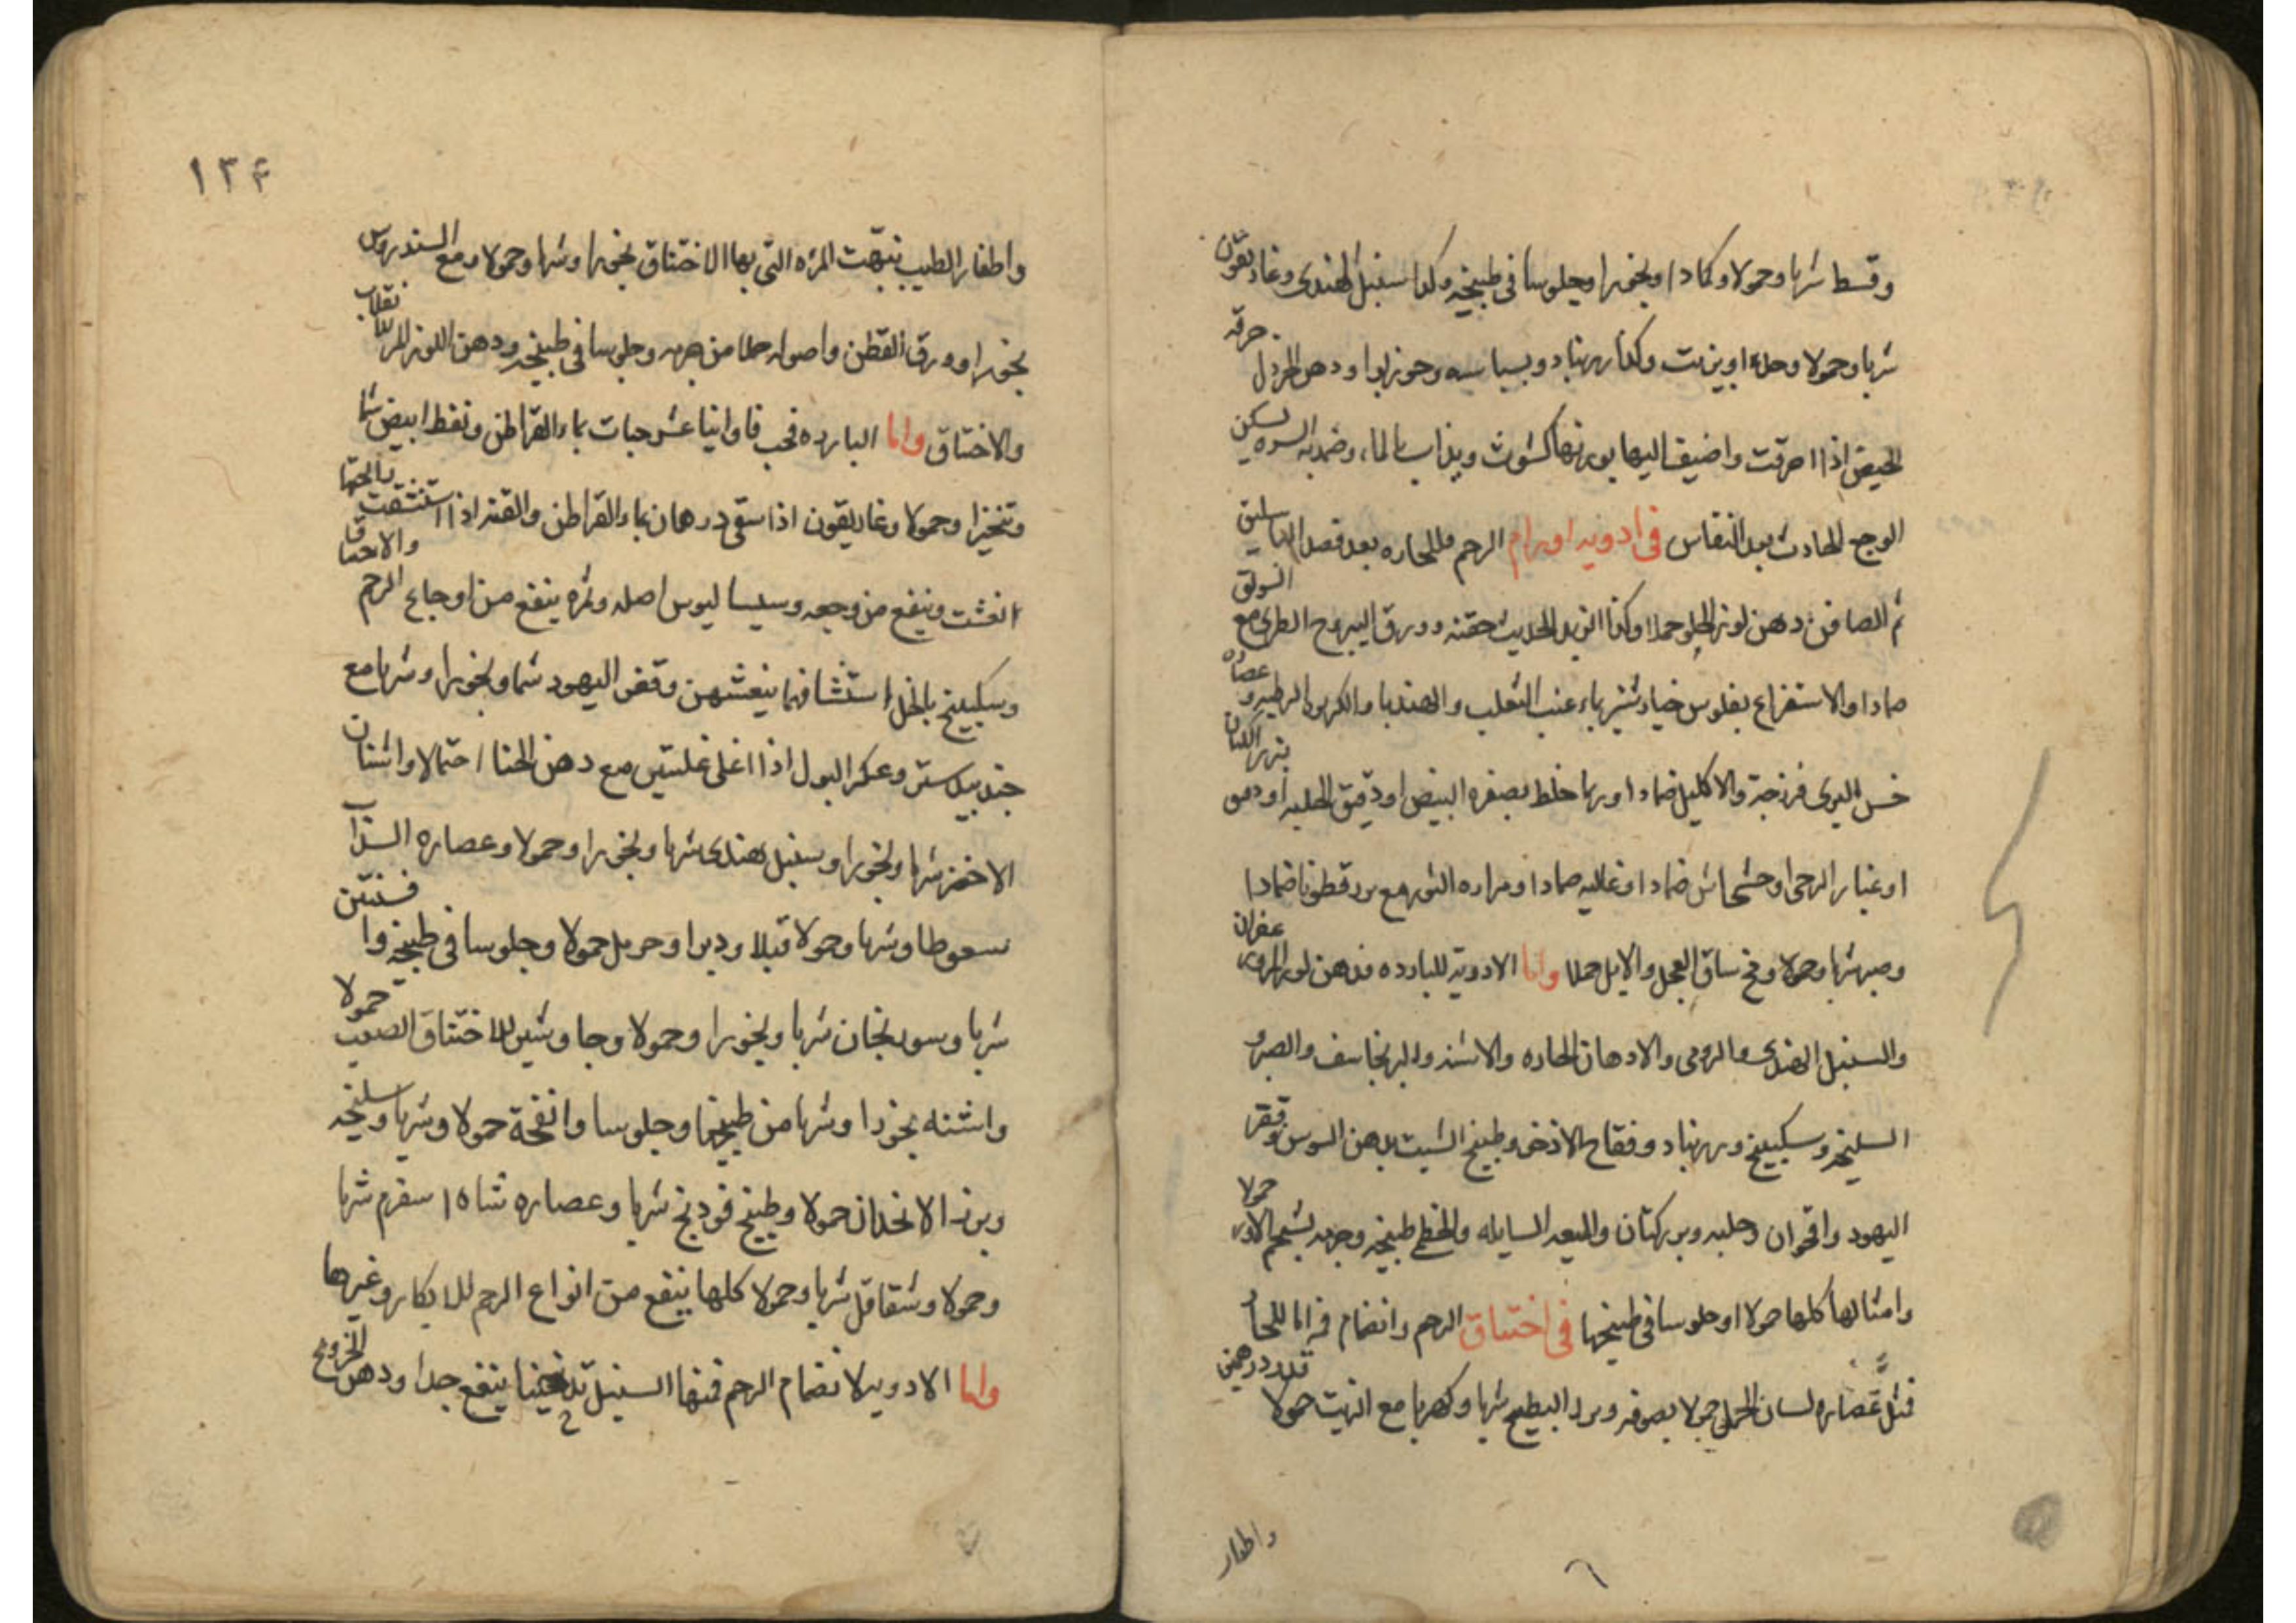 وقسط شربا وحمولا وكمادا وبخورا وجلوسا في طبيخه وكذا سنبل الهندي وغاريقون
شربا وحمولا وحده او بزيت وكذا زرنباد وبسباسه وجوزبوا ودهن الخردل حرقه
الحيض اذا احرقت واضيف اليها بورنها كشوث ويذاب بالماء وضمد به السره يسكن
الوجع الحادث بعد النفاس في ادويه اورام الرحم فللحاره بعد فصد الباسليق
ثم الصافن دهن لوز الحلو حملا وكذا الزبد الحديث حقنه وورق اليبروح الطري مع السولق
ضمادا والاستفراغ بفلوس خيارشنبر بماء عنب الثعلب والهندبا والكرنب الرطبه و عصاره
خس البري فرزجة والاكليل ضمادا وربما خلط بصفره البيض او دقيق الحلبه او دهن بزر الكتان
او غبار الرحى او خشخاش ضمادا وغاليه ضمادا ومراره الثور مع بزرقطونا ضمادا
وصبر شربا وحمولا ومخ ساق العجل والايل حملا واما الادوية للبارده فدهن لوز المر وزعفران
والسنبل الهندي والرومي والادهان الحاره والاشنه والبرنجاسف والصبر و
السليخه وسكبينج وزرنباد وفقاح الاذخر وطبيخ الشبت بدهن السوس وقفر
اليهود واقحوان وحلبه وبزر كتان والميعه السايله والخطمي طبيخه وجرمه بشحم الاوز حمولا
وامثالها كلها حمولا او جلوسا في طبيخها في اختناق الرحم وانضمام فم اما للحار
فمثل عصاره لسان الحمل حمولا بصوفه وبزر البطيخ شربا وكهربا مع الزيت حمولا قدر درهمين
واظفار
١٣٤
واظفار الطيب نبهت المره التي بها الاختناق بخورا وشربا وحمولا ومع السندروس
بخورا وورق القطن واصوله حملا من جرمه وجلوسا في طبيخه ودهن اللوز المر لانقلاب
والاختناق واما البارده فحب فاوانيا عشر حبات بماء القراطن ونفط ابيض شما
وتبخيرا وحمولا وغاريقون اذا سقي درهمان بماء القراطن والقنه اذا استنشقت رايحتها
انعشت وينفع من وجعه وسيساليوس اصله وثمره ينفع من اوجاع الرحم والاختناق
وسكبينج بالخل استنشاقهما ينعشهن وقفر اليهود شما وبخورا وشربا مع
جندبيدستر وعكر البول اذا اغلي غليتين مع دهن الحنا احتمالا واشنان
الاخضر شربا وبخورا وسنبل هندي شربا وبخورا وحمولا وعصاره السذاب
سعوطا وشربا وحمولا قبلا ودبرا وحرمل حمولا وجلوسا في طبيخه وافسنتين
شربا وسورنجان شربا وبخورا وحمولا وجاوشير للاختناق الصعب حمولا
واشنه بخورا وشربا من طبيخها وجلوسا وانفحة حمولا وشربا وسليخه
وبزر الانجدان حمولا وطبيخ فودنج شربا وعصاره شاه اسفرم شربا
وحمولا وشقاقل شربا وحمولا كلها ينفع من انواع الرحم للابكار وغيرها
واما الادويه لانضمام الرحم فمنها السنبل تدخينا ينفع جدا ودهن الخروع